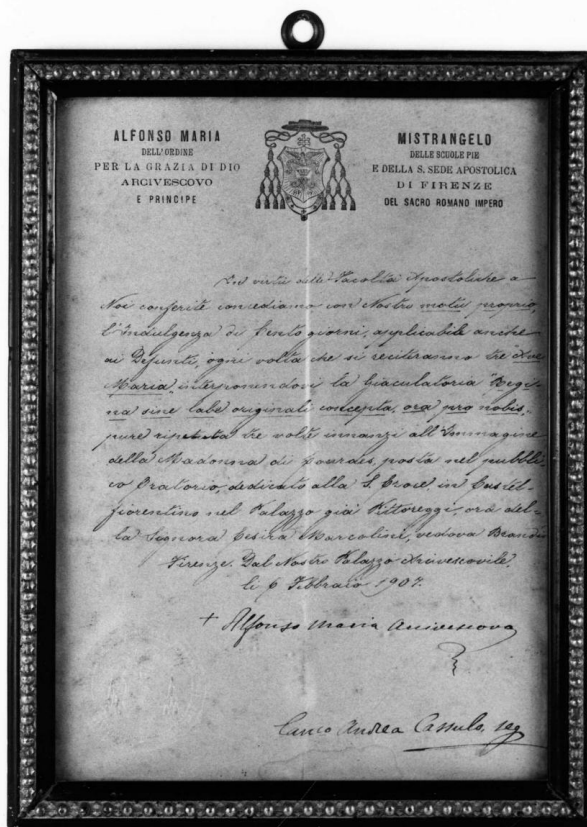 ALFONSO MARIA
DELL'ORDINE
PER LA GRAZIA DI DIO
ARCIVESCOVO
E PRINCIPE
MISTRANGELO
DELLE SCUOLE PIE
E DELLA S. SEDE APOSTOLICA
DI FIRENZE
DEL SACRO ROMANO IMPERO
In virtù delle Facoltà Apostoliche a
Noi conferite concediamo con Nostro motu proprio,
l'Indulgenza di Cento giorni, applicabile anche
ai Defunti, ogni volta che si reciteranno tre Ave
Maria, interponendovi la Giaculatoria Regi-
na sine labe originali concepta, ora pro nobis,
pure ripetuta tre volte innanzi all'Immagine
della Madonna di Lourdes, posta nel pubbli-
co Oratorio, dedicato alla S. Croce in Castel-
fiorentino nel Palazzo già Pittoreggi, ora del-
la Signora Cesira Marcolini, vedova Brandini
Firenze. Dal Nostro Palazzo Arcivescovile,
li 6 Febbraio 1907.
+ Alfonso Maria Arcivescovo
Can.co Andrea Cassulo, seg